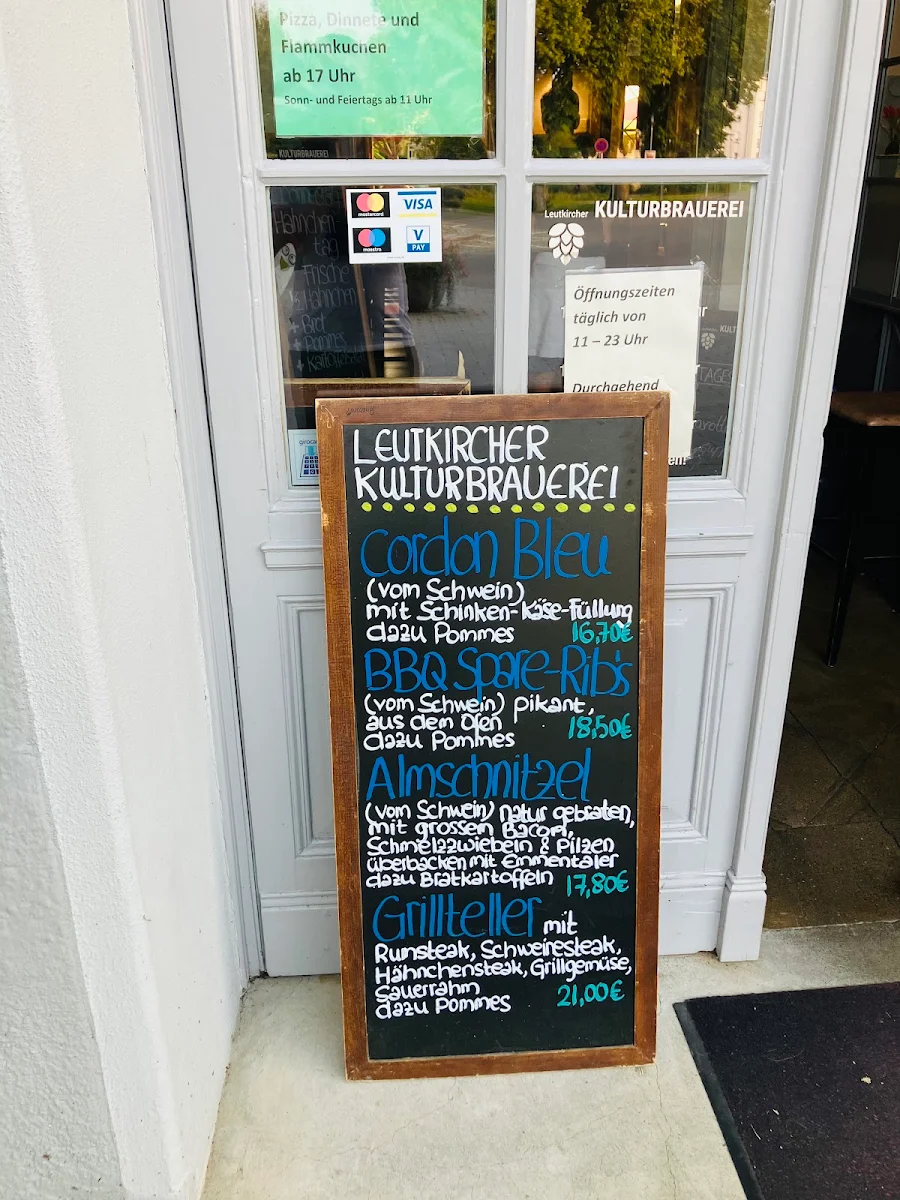 Pizza, Dinnete und
Flammkuchen
ab 17 Uhr
Sonn- und Feiertags ab 11 Uhr
KULTURBRAUEREI
mastercard
VISA
maestro
V
PAY
Hähnchen
tag
Frische
½ Hähnchen
+ Brot
+ Pommes
Leutkircher KULTURBRAUEREI
Öffnungszeiten
täglich von
11 – 23 Uhr
Durchgehend
KULT
TAGES
girocard
LEUTKIRCHER
KULTURBRAUEREI
Cordon Bleu
(vom Schwein)
mit Schinken-Käse-Füllung
dazu Pommes 16,70€
BBQ Spare-Rib's
(vom Schwein) pikant,
aus dem Ofen
dazu Pommes 18,50€
Almschnitzel
(vom Schwein) natur gebraten,
mit grossem Bacon,
Schmelzzwiebeln & Pilzen
überbacken mit Emmentaler
dazu Bratkartoffeln 17,80€
Grillteller mit
Rumsteak, Schweinesteak,
Hähnchensteak, Grillgemüse,
Sauerrahm
dazu Pommes 21,00€